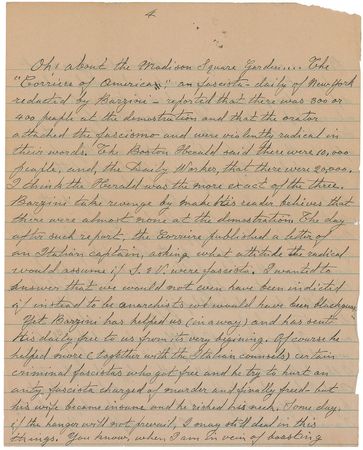 4
Oh! about the Madison Square Garden.... The
"Corriere of America," an fascista-daily of New York
redacted by Barzini - reported that there was 300 or
400 people at the demostration and that the orator
attached the fascismo and were violently radical in
their words. The Boston Herald said there were 10,000
people, and, the Daily Worker, that there were 20,000.
I think the Herald was the more exact of the three.
Barzini take revenge by make his reader believes that
there were almost none at the demostration. The day
after such report, the Corriere published a letter of
an Italian captain, asking what attitude the radical
would assume if S. & V. were fascista. I wanted to
answer that we would not even have been indicted
if instead to be anarchists we would have been
Yet Barzini has helped us (in a way) and has sent
his daily free to us from its very begining. Of course he
helped more (together with the Italian counsels) certain
criminal fascistas who got free and he try to hurt an
anty fascista charged of murder and finally freed - but
his wife become insane and he risked his neck. Some day,
if the hanger will not prevail, I may still deal in this
things. You know, when I am in vein of boasting